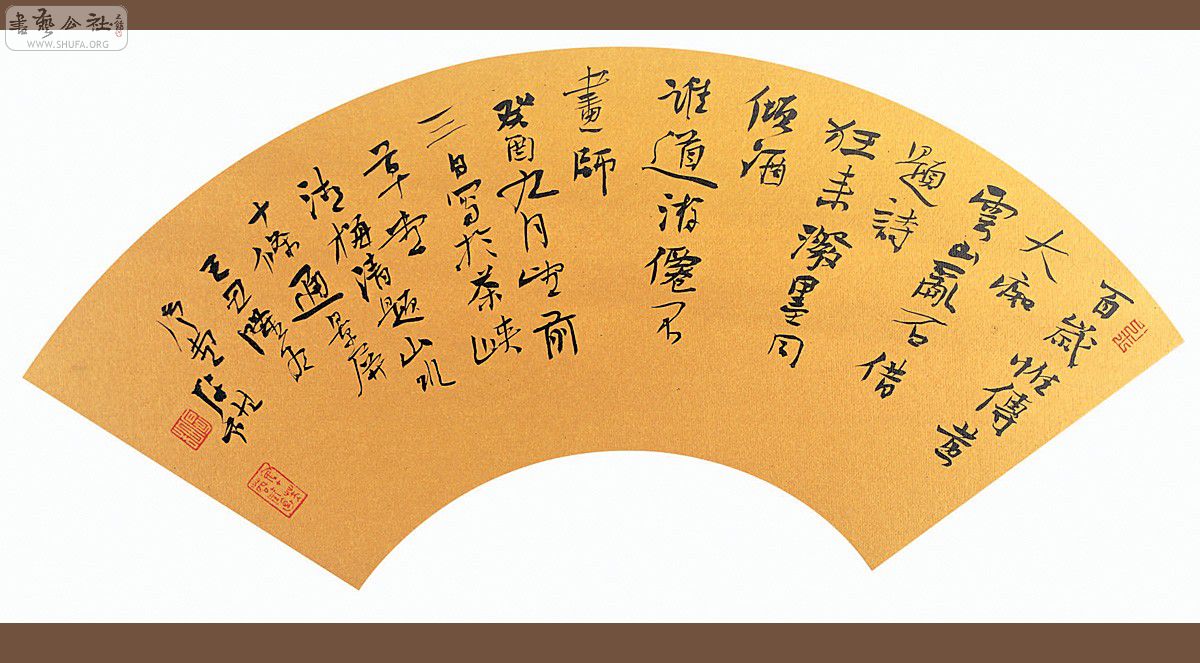 書藝公社
WWW.SHUFA.ORG
百歲惟傳黃
大癡
雲山亂石借
題詩
狂來潑墨同
傾酒
誰道游僊
畫師
癸酉九月望前
三日寫於茶峽
草堂
清梅清題山水
十條通景屏
己丑隆冬